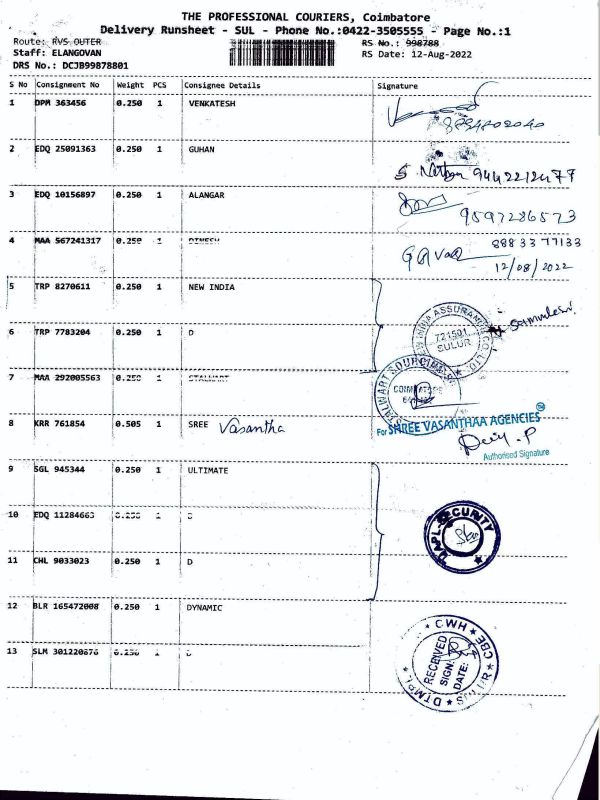 THE PROFESSIONAL COURIERS, Coimbatore
Delivery Runsheet - SUL - Phone No.:0422-3505555 - Page No.:1
Route: RVS OUTER
RS No.: 998788
Staff: ELANGOVAN
RS Date: 12-Aug-2022
DRS No.: DCJB99878801
S No Consignment No Weight PCS Consignee Details Signature
1 DPM 363456 0.250 1 VENKATESH
2 EDQ 25091363 0.250 1 GUHAN
9442212477
3 EDQ 10156897 0.250 1 ALANGAR
9597286573
4 MAA 567241317 0.250 1 DINESH
88833 77133
12/08/2022
5 TRP 8270611 0.250 1 NEW INDIA
NEW INDIA ASSURANCE CO. LTD.
721501
SULUR
6 TRP 7783204 0.250 1 D
7 MAA 292005563 0.250 1 STALWART
STALWART SOURCING
8 KRR 761854 0.505 1 SREE Vasantha
For SHREE VASANTHAA AGENCIES
Authorised Signature
9 SGL 945344 0.250 1 ULTIMATE
10 EDQ 11284663 0.250 1 D
SECURITY
11 CHL 9033023 0.250 1 D
12 BLR 165472008 0.250 1 DYNAMIC
CWH CBE
RECEIVED
SIGN:
DATE:
DTMPL SULUR
13 SLM 301220876 0.250 1 D